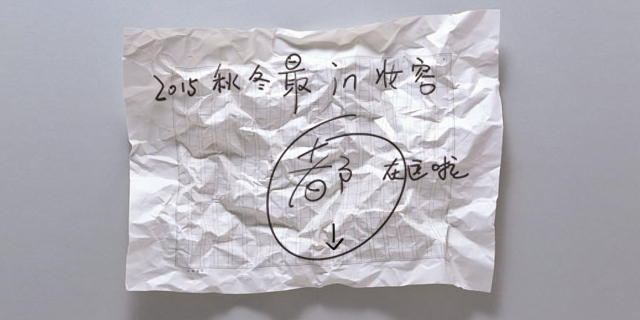 2015 秋冬最 in 妆容
都在这啦